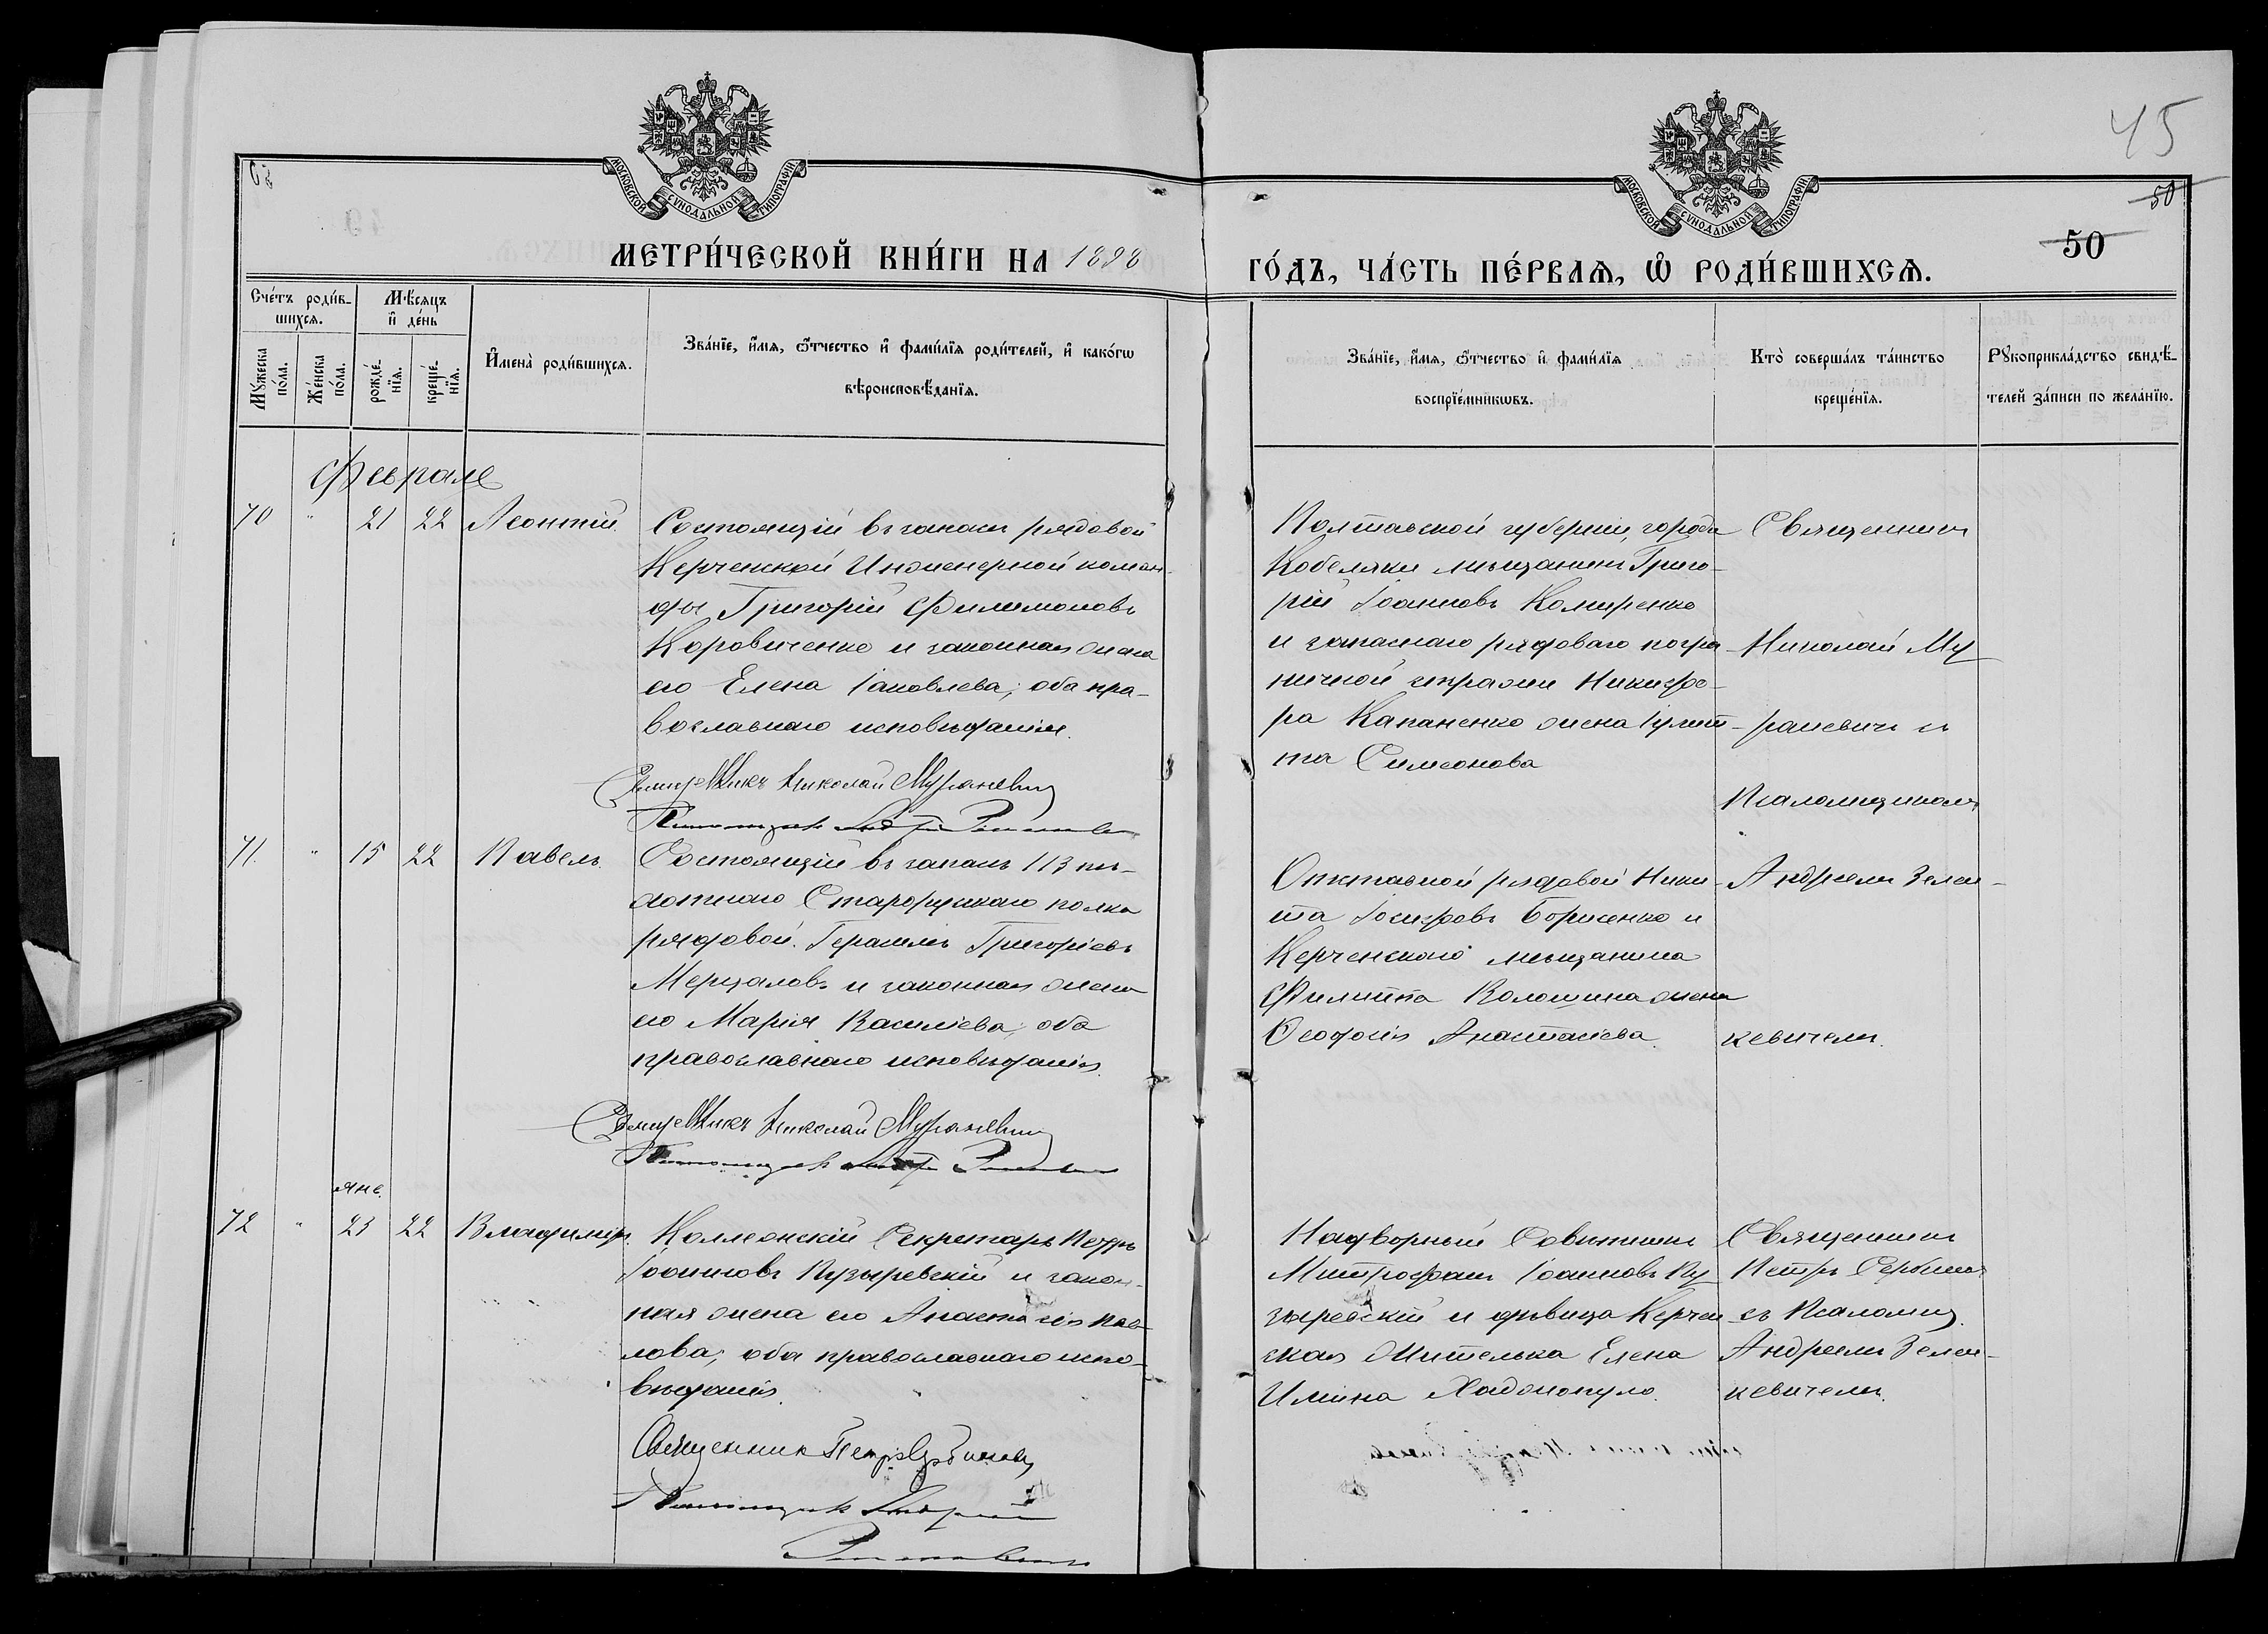 45
50
50
МОСКОВСКОЙ СѴНОДАЛЬНОЙ ТИПОГРАФІИ
МОСКОВСКОЙ СѴНОДАЛЬНОЙ ТИПОГРАФІИ
МЕТРИ́ЧЕСКОЙ КНИ́ГИ НА 1898
ГО́ДЪ, ЧА́СТЬ ПЕ́РВАѦ, Ѡ҆ РОДИ́ВШИХСѦ.
Сче́тъ роди́в-
шихсѧ.
Мꙋ́жеска по́ла.
Же́нска по́ла.
Мѣ́сяцъ и҆ де́нь
рожде́-нїѧ.
креще́-нїѧ.
И҆мена̀ роди́вшихсѧ.
Зва́нїе, и҆́мѧ, ѻ҆́тчество и҆ фами́лїѧ роди́телей, и҆ како́гѡ
вѣроисповѣ́данїѧ.
Зва́нїе, и҆́мѧ, ѻ҆́тчество и҆ фами́лїѧ
воспрїе́мникѡвъ.
Кто̀ соверша́лъ та́инство
креще́нїѧ.
Рꙋкоприкла́дство свидѣ́-
телей за́писи по жела́нїю.
Февраль
70 " 21 22 Леонтій
Состоящій въ запасѣ рядовой
Керченской Инженерной коман-
ды Григорій Филимоновъ
Коровиченко и законная жена
его Елена Іаковлева; оба пра-
вославнаго исповѣданія.
Священникъ Николай Мураневичъ
Псаломщикъ Андрей
Полтавской губерніи, города
Кобеляки мѣщанинъ Григо-
рій Іоанновъ
и запаснаго рядоваго погра-
ничной стражи Никифо-
ра Капаненко жена Іулит-
та Симеонова
Священникъ
Николай Му
раневичъ съ
Псаломщикомъ
Андреемъ Зелен-
кевичемъ.
71. " 15 22 Павелъ
Состоящій въ запасѣ 113 пѣ-
хотнаго Старорусскаго полка
рядовой Герасимъ Григоріевъ
Мерцаловъ и законная жена
его Марія Василіева; оба
православнаго исповѣданія.
Священникъ Николай Мураневичъ
Псаломщикъ Андрей
Отставной рядовой Ники-
та Іосифовъ Борисенко и
Керченскаго мѣщанина
Филиппа Волошина жена
Ѳеодосія Анастасіева.
янв.
72 " 23 22 Владиміръ.
Коллежскій Секретарь Петръ
Іоанновъ Пузыревскій и закон-
ная жена его Анастасія Пав-
лова; оба православнаго испо-
вѣданія.
Священникъ Петръ Сербиновъ
Псаломщикъ Андрей
Надворный Совѣтникъ
Митрофанъ Іоанновъ Пу-
зыревскій и дѣвица Керчен-
ская жителька Елена
Ильина Хаджопуло.
Священникъ
Петръ Сербиновъ
съ Псаломщ.
Андреемъ Зелен-
кевичемъ.